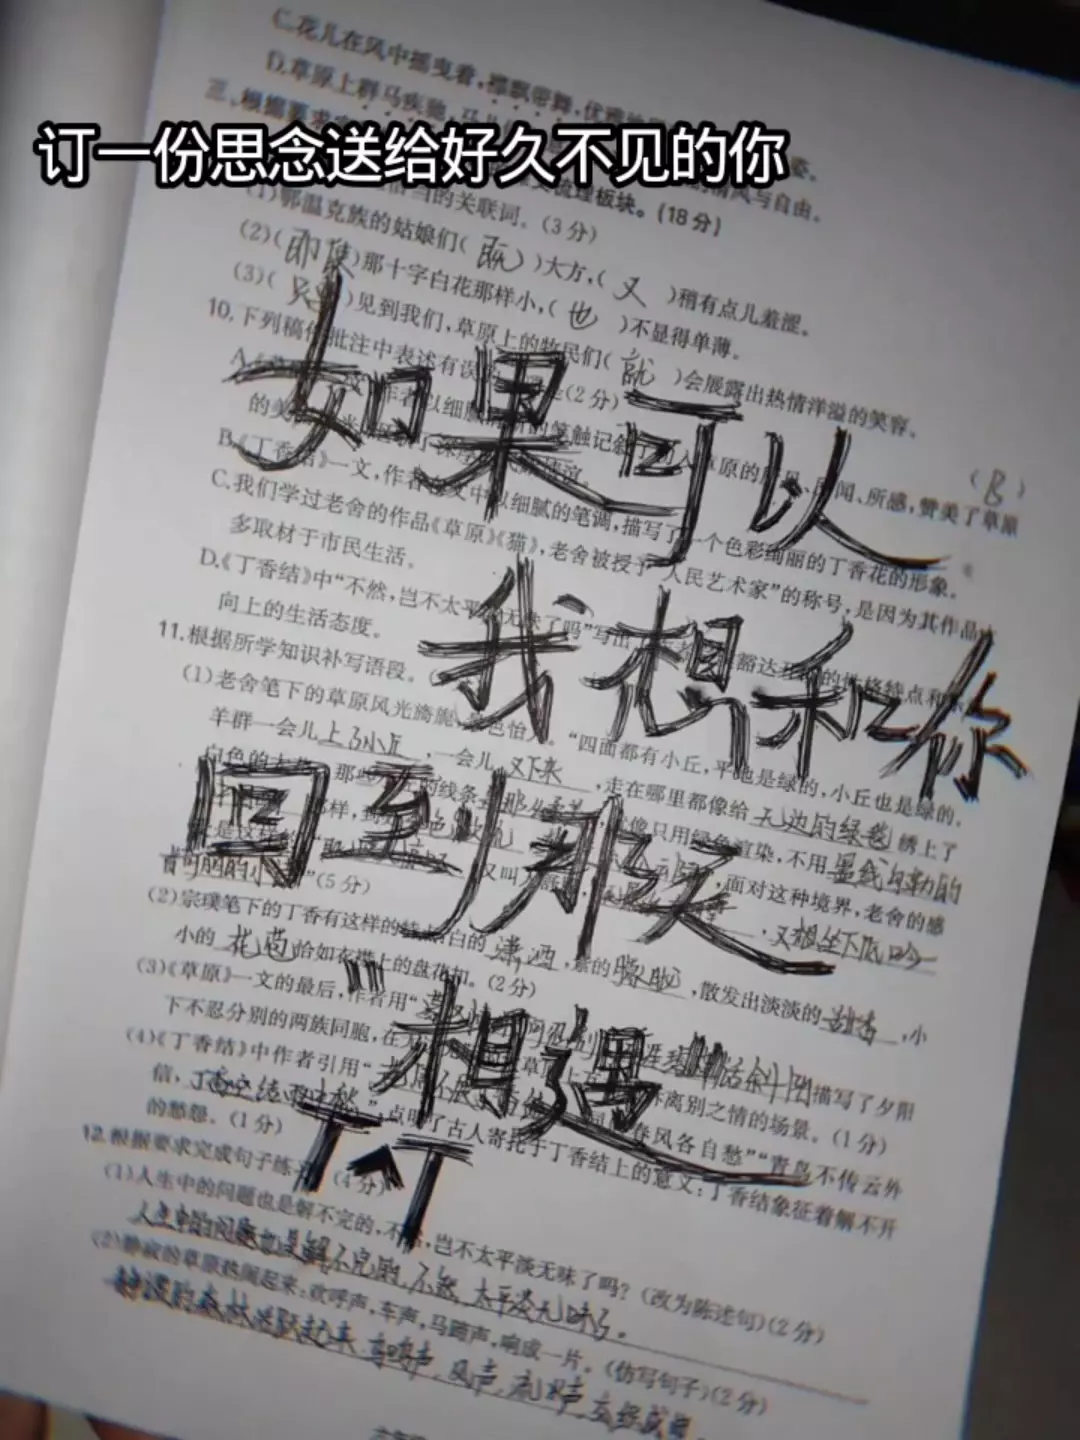 C.花儿在风中摇曳着,襟飘带舞,优雅
D.草原上群马疾驰,马
三、根据要求
订一份思念送给好久不见的你
梳理板块。(18分)
的关联词。(3分)
(1)鄂温克族的姑娘们(既)大方,(又)稍有点儿羞涩。
(2)(即使)那十字白花那样小,(也)不显得单薄。
(3)(只要)见到我们,草原上的牧民们(就)会展露出热情洋溢的笑容。
10.下列稿件批注中表述有误的 (2分) (B)
如果可以
所闻、所感,赞美了草原
的美
B.《丁香结》一文,作者 以细腻的笔调,描写了一个色彩绚丽的丁香花的形象。
C.我们学过老舍的作品《草原》《猫》,老舍被授予“人民艺术家”的称号,是因为其作品
多取材于市民生活。
D.《丁香结》中“不然,岂不太平淡无味了吗”写出
向上的生活态度。
我想和你
11.根据所学知识补写语段。
(1)老舍笔下的草原风光旖旎, 色怡人。“四面都有小丘,平地是绿的,小丘也是绿的。
羊群一会儿上了小丘,一会儿又下来,走在哪里都像给无边的绿毯绣上了
白色的大花。那些小丘的线条是那么柔美, 像只用绿色渲染,不用墨线勾勒的
回到那天
面对这种境界,老舍的感
”(5分)
又想坐下低吟
(2)宗璞笔下的丁香有这样的特点:白的潇洒,紫的朦胧,散发出淡淡的 ,小
小的花苞恰如衣襟上的盘花扣。(2分)
(3)《草原》一文的最后,作者用“ 话斜阳 描写了夕阳
下不忍分别的两族同胞,在 草原上 离别之情的场景。(1分)
相遇
(4)《丁香结》中作者引用“ 春风各自愁”“青鸟不传云外
信,丁香空结雨中愁”,点明了古人寄托于丁香结上的意义:丁香结象征着解不开
的愁怨。(1分)
12.根据要求完成句子练习。(4分)
(1)人生中的问题也是解不完的,不然,岂不太平淡无味了吗?(改为陈述句)(2分)
人生中的问题也是解不完的,不然,太平淡无味了。
(2)静寂的草原热闹起来:欢呼声,车声,马蹄声,响成一片。(仿写句子)(2分)